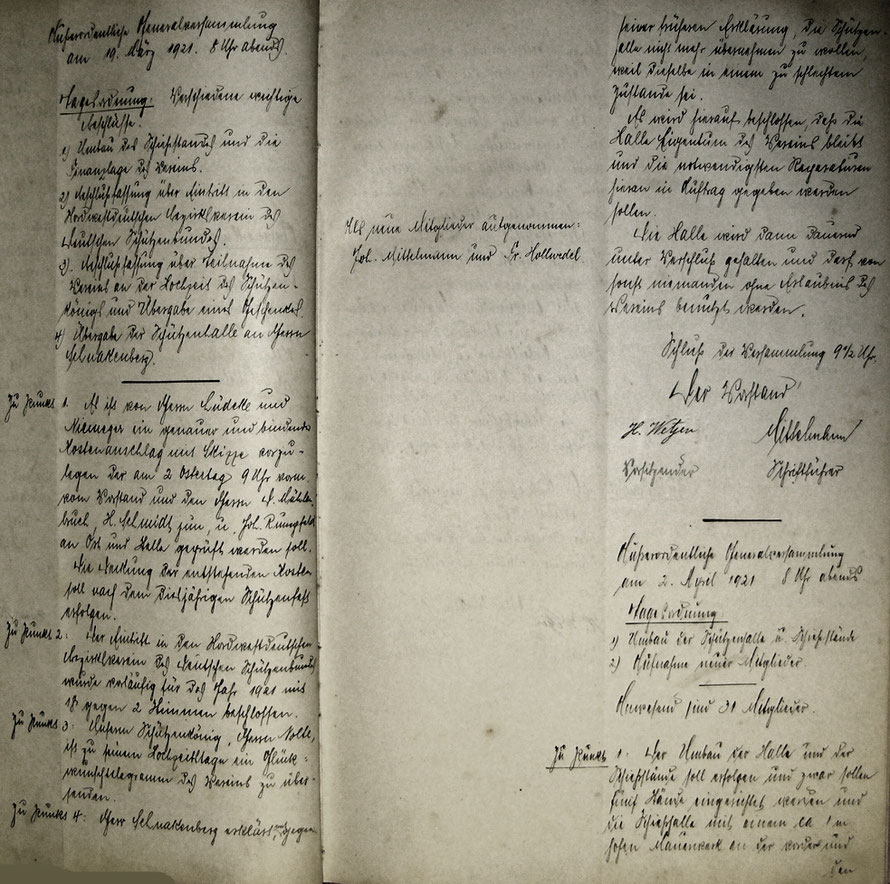 Außerordentliche Generalversammlung
am 19. März 1921. 8 Uhr abends.
Tagesordnung: Verschiedene wichtige
Beschlüsse.
1) Umbau des Schießstandes und die
Finanzlage des Vereins.
2) Beschlußfassung über Eintritt in den
Nordwestdeutschen Bezirksverein des
Deutschen Schützenbundes.
3) Beschlußfassung über Teilnahme des
Vereins an der Hochzeit des Schützen-
königs und Übergabe eines Geschenkes.
4) Übergabe der Schützenhalle an Herrn
Schnakenberg.
Zu Punkt 1. Es ist von Herrn Lüdeke und
Niemeyer ein genauer und bindender
Kostenanschlag mit Skizze vorzu-
legen der am 2 Ostertag 9 Uhr vorm.
vom Vorstand und den Herrn D. Mühlen-
bruch, H. Schmidt jun. u. Joh. Rumpfeld
an Ort und Stelle geprüft werden soll.
Die Deckung der entstehenden Kosten
soll nach dem diesjährigen Schützenfest
erfolgen.
Zu Punkt 2: Der Eintritt in den Nordwestdeutschen
Bezirksverein des Deutschen Schützenbundes
wurde vorläufig für das Jahr 1921 mit
18 gegen 2 Stimmen beschlossen.
Zu Punkt 3: Unserm Schützenkönig, Herrn Nolte,
ist zu seinem Hochzeitstage ein Glück-
wunschtelegramm des Vereins zu über-
senden.
Zu Punkt 4: Herr Schnakenberg erklärt, gegen
Als neue Mitglieder aufgenommen:
Joh. Mittelmann und Fr. Hollwedel.
seiner früheren Erklärung, die Schützen-
halle nicht mehr übernehmen zu wollen,
weil dieselbe in einem zu schlechtem
Zustande sei.
Es wird hierauf beschlossen, daß die
Halle Eigentum des Vereins bleibt
und die notwendigsten Reparaturen
hieran in Auftrag gegeben werden
sollen.
Die Halle wird dann dauernd
unter Verschluß gehalten und darf von
sonst niemanden ohne Erlaubnis des
Vereins benutzt werden.
Schluß der Versammlung 9½ Uhr.
Der Vorstand
H. Wetjen Mittelmann
Vorsitzender Schriftführer
Außerordentliche Generalversammlung
am 2. April 1921 8 Uhr abends
Tagesordnung:
1) Umbau der Schützenhalle u. Schießstände
2) Aufnahme neuer Mitglieder.
Anwesend sind 31 Mitglieder.
Zu Punkt 1. Der Umbau der Halle und der
Schießstände soll erfolgen und zwar sollen
fünf Stände eingerichtet werden und
die Schießhalle mit einem ca 1 m
hohen Mauerwerk an der vorder und
den